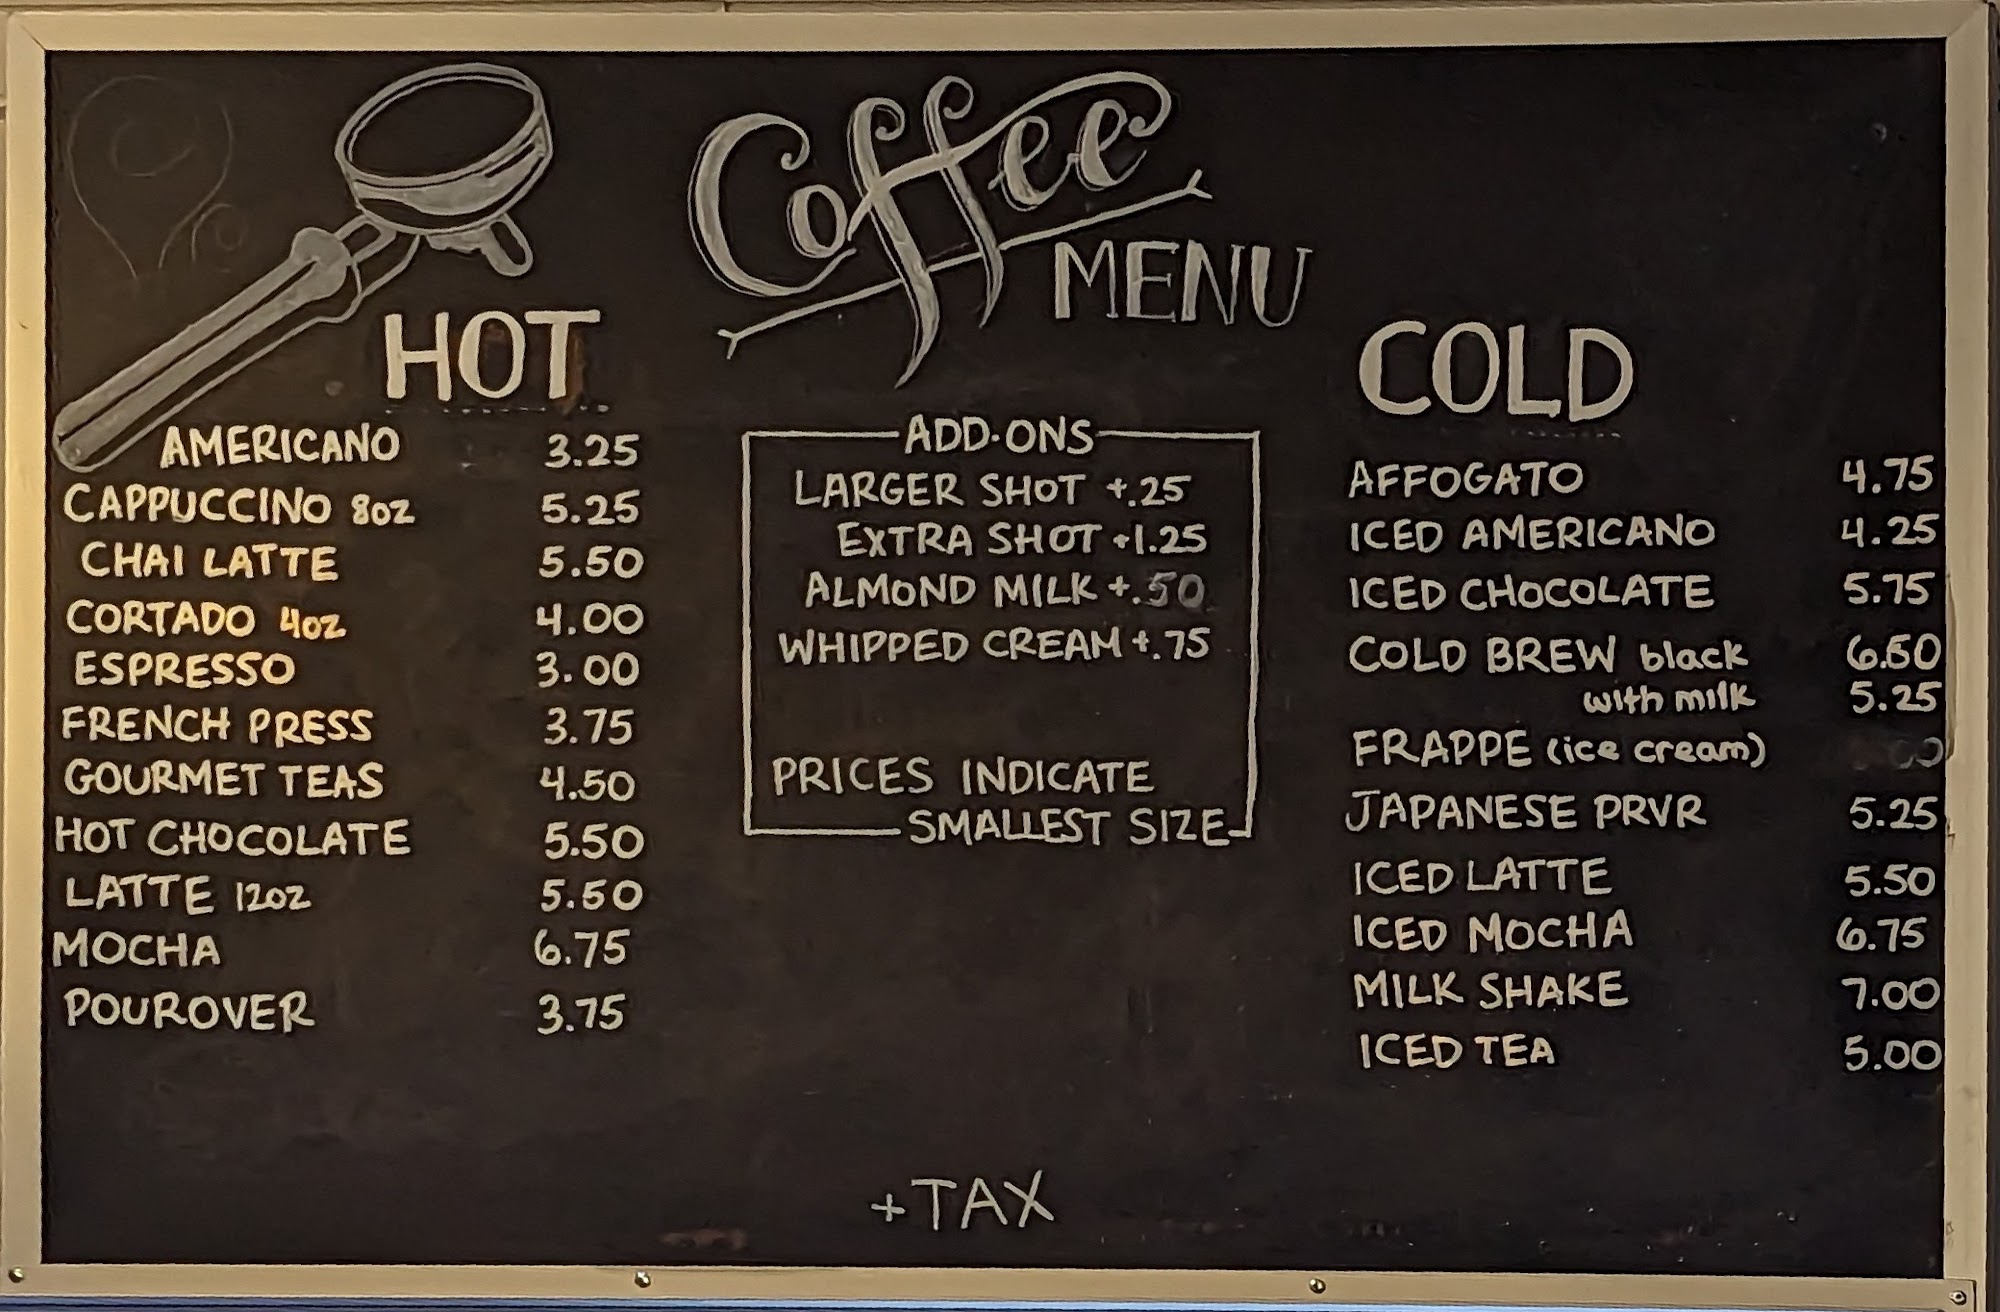 Coffee
MENU
HOT
AMERICANO 3.25
CAPPUCCINO 8oz 5.25
CHAI LATTE 5.50
CORTADO 4oz 4.00
ESPRESSO 3.00
FRENCH PRESS 3.75
GOURMET TEAS 4.50
HOT CHOCOLATE 5.50
LATTE 12oz 5.50
MOCHA 6.75
POUROVER 3.75
ADD-ONS
LARGER SHOT +.25
EXTRA SHOT +1.25
ALMOND MILK +.50
WHIPPED CREAM +.75
PRICES INDICATE
SMALLEST SIZE
COLD
AFFOGATO 4.75
ICED AMERICANO 4.25
ICED CHOCOLATE 5.75
COLD BREW black
with milk 5.25
FRAPPE (ice cream)
JAPANESE PRVR 5.25
ICED LATTE 5.50
ICED MOCHA 6.75
MILK SHAKE 7.00
ICED TEA 5.00
+TAX